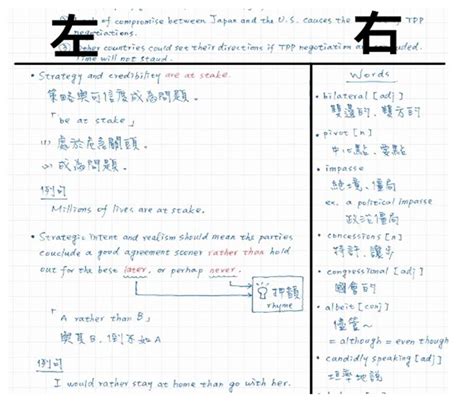 of compromise between Japan and the U.S. causes the
TPP
negotiations.
other countries could set their directions if TPP negotiation
Time will not stand.
左
右
• Strategy and credibility are at stake.
策略與可信度成為問題。
「be at stake」
(1) 處於危急關頭。
(2) 成為問題。
例句
Millions of lives are at stake.
• Strategic intent and realism should mean the parties
conclude a good agreement sooner rather than hold
out for the best later, or perhap never.
押韻
rhyme
「A rather than B」
與其B,倒不如A
例句
I would rather stay at home than go with her.
Words
• bilateral [adj]
雙邊的、雙方的
• pivot [n]
中心點、要點
• impasse
絕境、僵局
ex. a political impasse
政治僵局
• concessions [n]
特許、讓步
• congressional [adj]
國會的
• albeit [conj]
儘管~
= although = even though
• candidly speaking [adj]
坦率地說